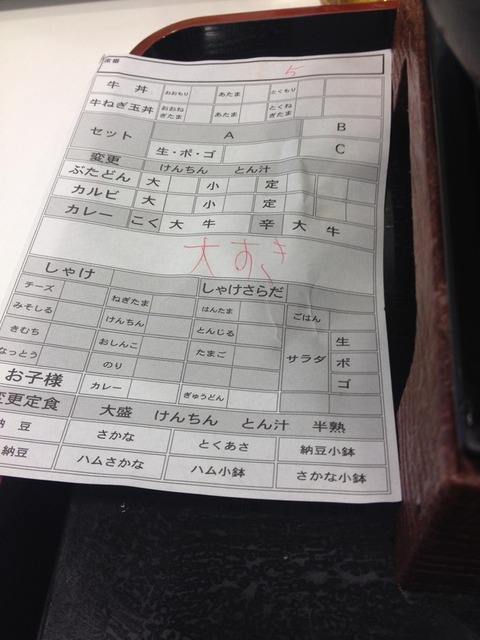 席番 5
牛丼 おおもり あたま とくもり
牛ねぎ玉丼 おおねぎたま あたま とくねぎたま
セット A B
生・ポ・ゴ C
変更 けんちん とん汁
ぶたどん 大 小 定
カルビ 大 小 定
カレー こく 大 牛 辛 大 牛
大すき
しゃけ しゃけさらだ
チーズ ねぎたま はんたま ごはん
みそしる けんちん とんじる サラダ 生
きむち おしんこ たまご ポ
なっとう のり ゴ
お子様 カレー ぎゅうどん
変更定食 大盛 けんちん とん汁 半熟
納豆 さかな とくあさ 納豆小鉢
納豆 ハムさかな ハム小鉢 さかな小鉢